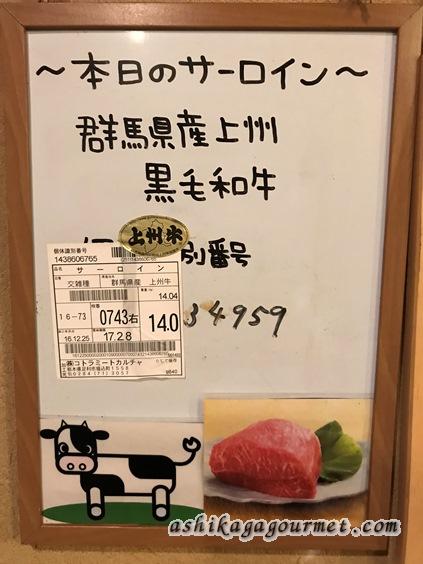 〜本日のサーロイン〜
群馬県産上州
黒毛和牛
別番号
34959
上州牛
個体識別番号
1438606765
品名
サーロイン
交雑種
群馬県産
上州牛
14.04
16-73
0743右
14.0
16.12.25
17.2.8
㈱コトラミートカルチャ
栃木県足利市堀込町1558
0284(71)3057
ashikagagourmet.com